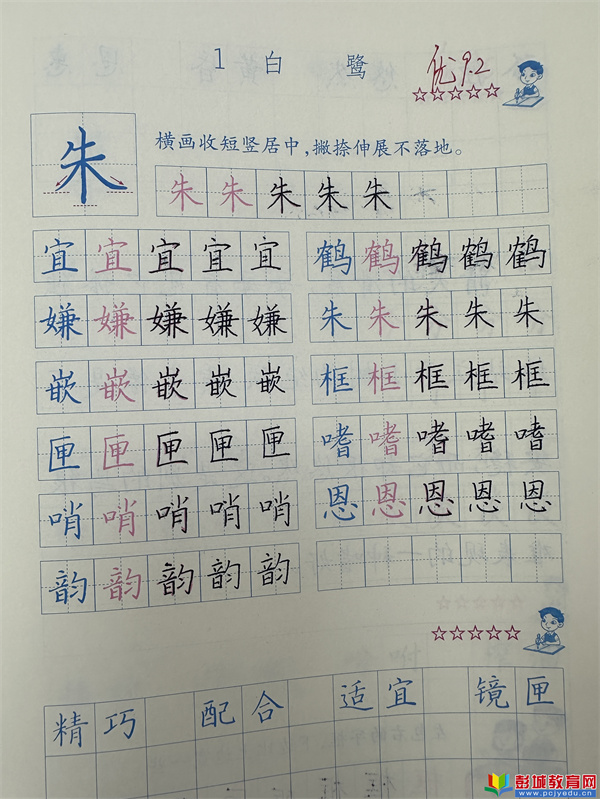 1 白鹭
优 9.2
朱
横画收短竖居中，撇捺伸展不落地。
朱 朱 朱 朱 朱
宜 宜 宜 宜 宜 鹤 鹤 鹤 鹤 鹤
嫌 嫌 嫌 嫌 嫌 朱 朱 朱 朱 朱
嵌 嵌 嵌 嵌 嵌 框 框 框 框 框
匣 匣 匣 匣 匣 嗜 嗜 嗜 嗜 嗜
哨 哨 哨 哨 哨 恩 恩 恩 恩 恩
韵 韵 韵 韵 韵
精巧 配合 适宜 镜匣
彭城教育网
www.pcjyedu.cn